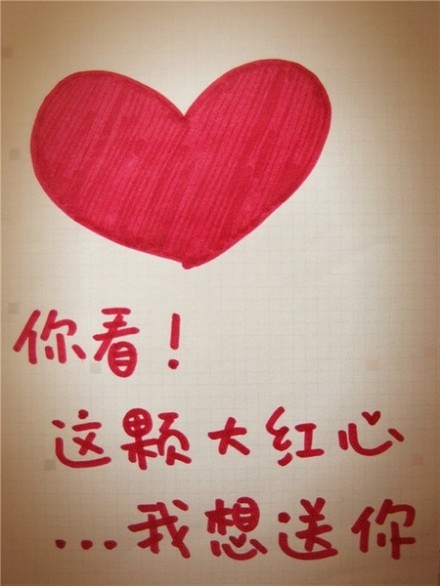 你看！
这颗大红心
...我想送你